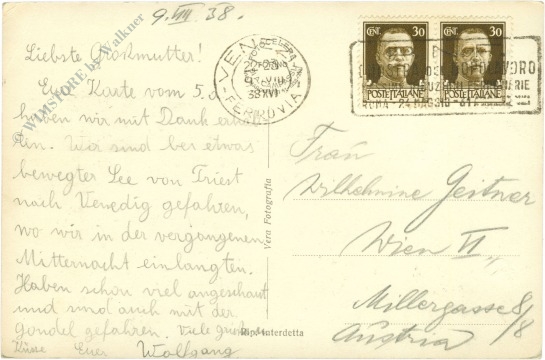 9. VIII 38.
Liebste Großmutter!
Eure Karte vom 5. d.
haben wir mit Dank erhal-
ten. Wir sind bei etwas
bewegter See von Triest
nach Venedig gefahren,
wo wir in der vergangenen
Mitternacht einlangten.
Haben schon viel angeschaut
und sind auch mit der
Gondel gefahren. Viele
Küsse Euer Wolfgang
by Walkner
VENEZIA
FERROVIA
CENT. 30
POSTE ITALIANE
CENT. 30
POSTE ITALIANE
ROMA - 24 MAGGIO -
Frau
Wilhelmine Geitner
Wien VI.,
Millergasse 8/8
Austria
Vera Fotografia
Rip. Interdetta